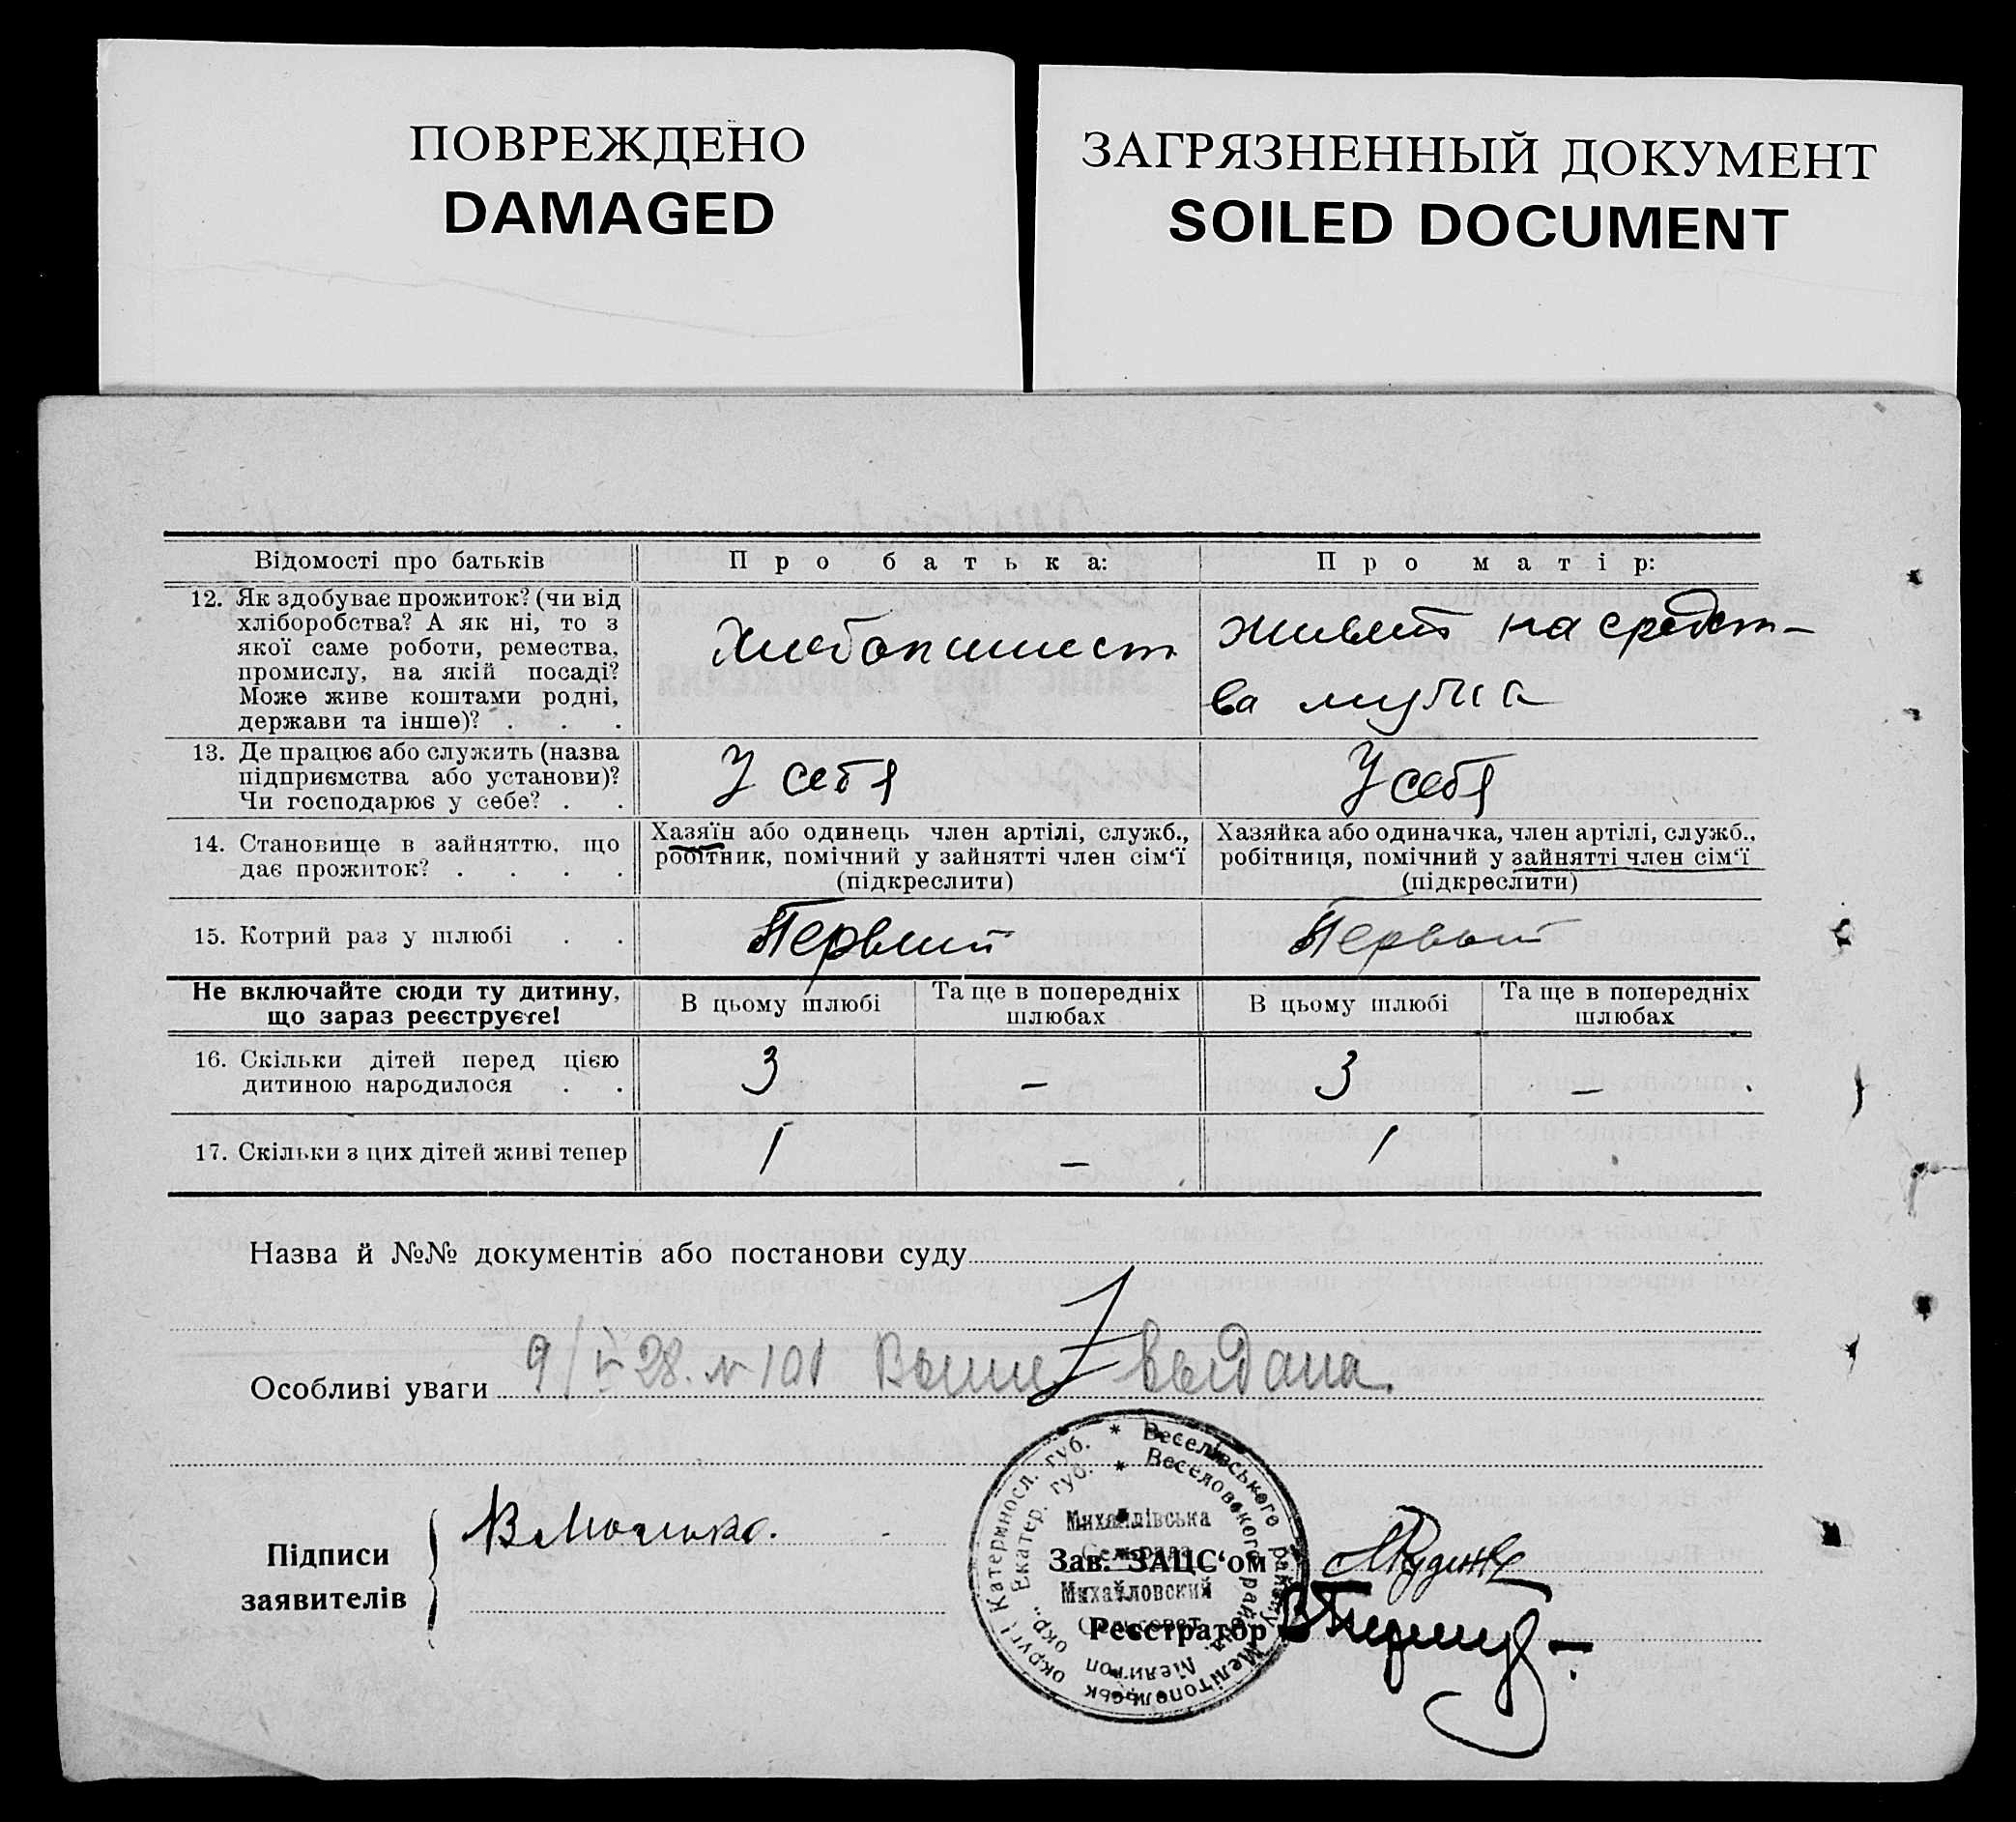 ПОВРЕЖДЕНО
DAMAGED
ЗАГРЯЗНЕННЫЙ ДОКУМЕНТ
SOILED DOCUMENT
Відомості про батьків
Про батька:
Про матір:
12. Як здобуває прожиток? (чи від
хліборобства? А як ні, то з
якої саме роботи, ремества,
промислу, на якій посаді?
Може живе коштами родні,
держави та інше)? . . .
Хлебопашест
живет на средст-
ва мужа
13. Де працює або служить (назва
підприємства або установи)?
Чи господарює у себе? . .
У себя
У себя
14. Становище в зайняттю, що
дає прожиток? . . . .
Хазяїн або одинець член артілі, служб.,
робітник, помічний у зайнятті член сім‘ї
(підкреслити)
Хазяйка або одиначка, член артілі, служб.,
робітниця, помічний у зайнятті член сім‘ї
(підкреслити)
15. Котрий раз у шлюбі . .
Первый
Первый
Не включайте сюди ту дитину,
що зараз реєструєте!
В цьому шлюбі
Та ще в попередніх
шлюбах
В цьому шлюбі
Та ще в попередніх
шлюбах
16. Скільки дітей перед цією
дитиною народилося . .
3
–
3
–
17. Скільки з цих дітей живі тепер
1
–
1
Назва й №№ документів або постанови суду
Особливі уваги
9/V 28. № 101 выдана.
Підписи
заявителів
Зав. ЗАЦС‘ом
Реєстратор
* Веселівського району Мелітопольськ округи Катериносл. губ.
* Веселовского района. Мелитоп окр., Екатер. губ.
Михайлівська
Сельрада
Михайловский
Сельсовет